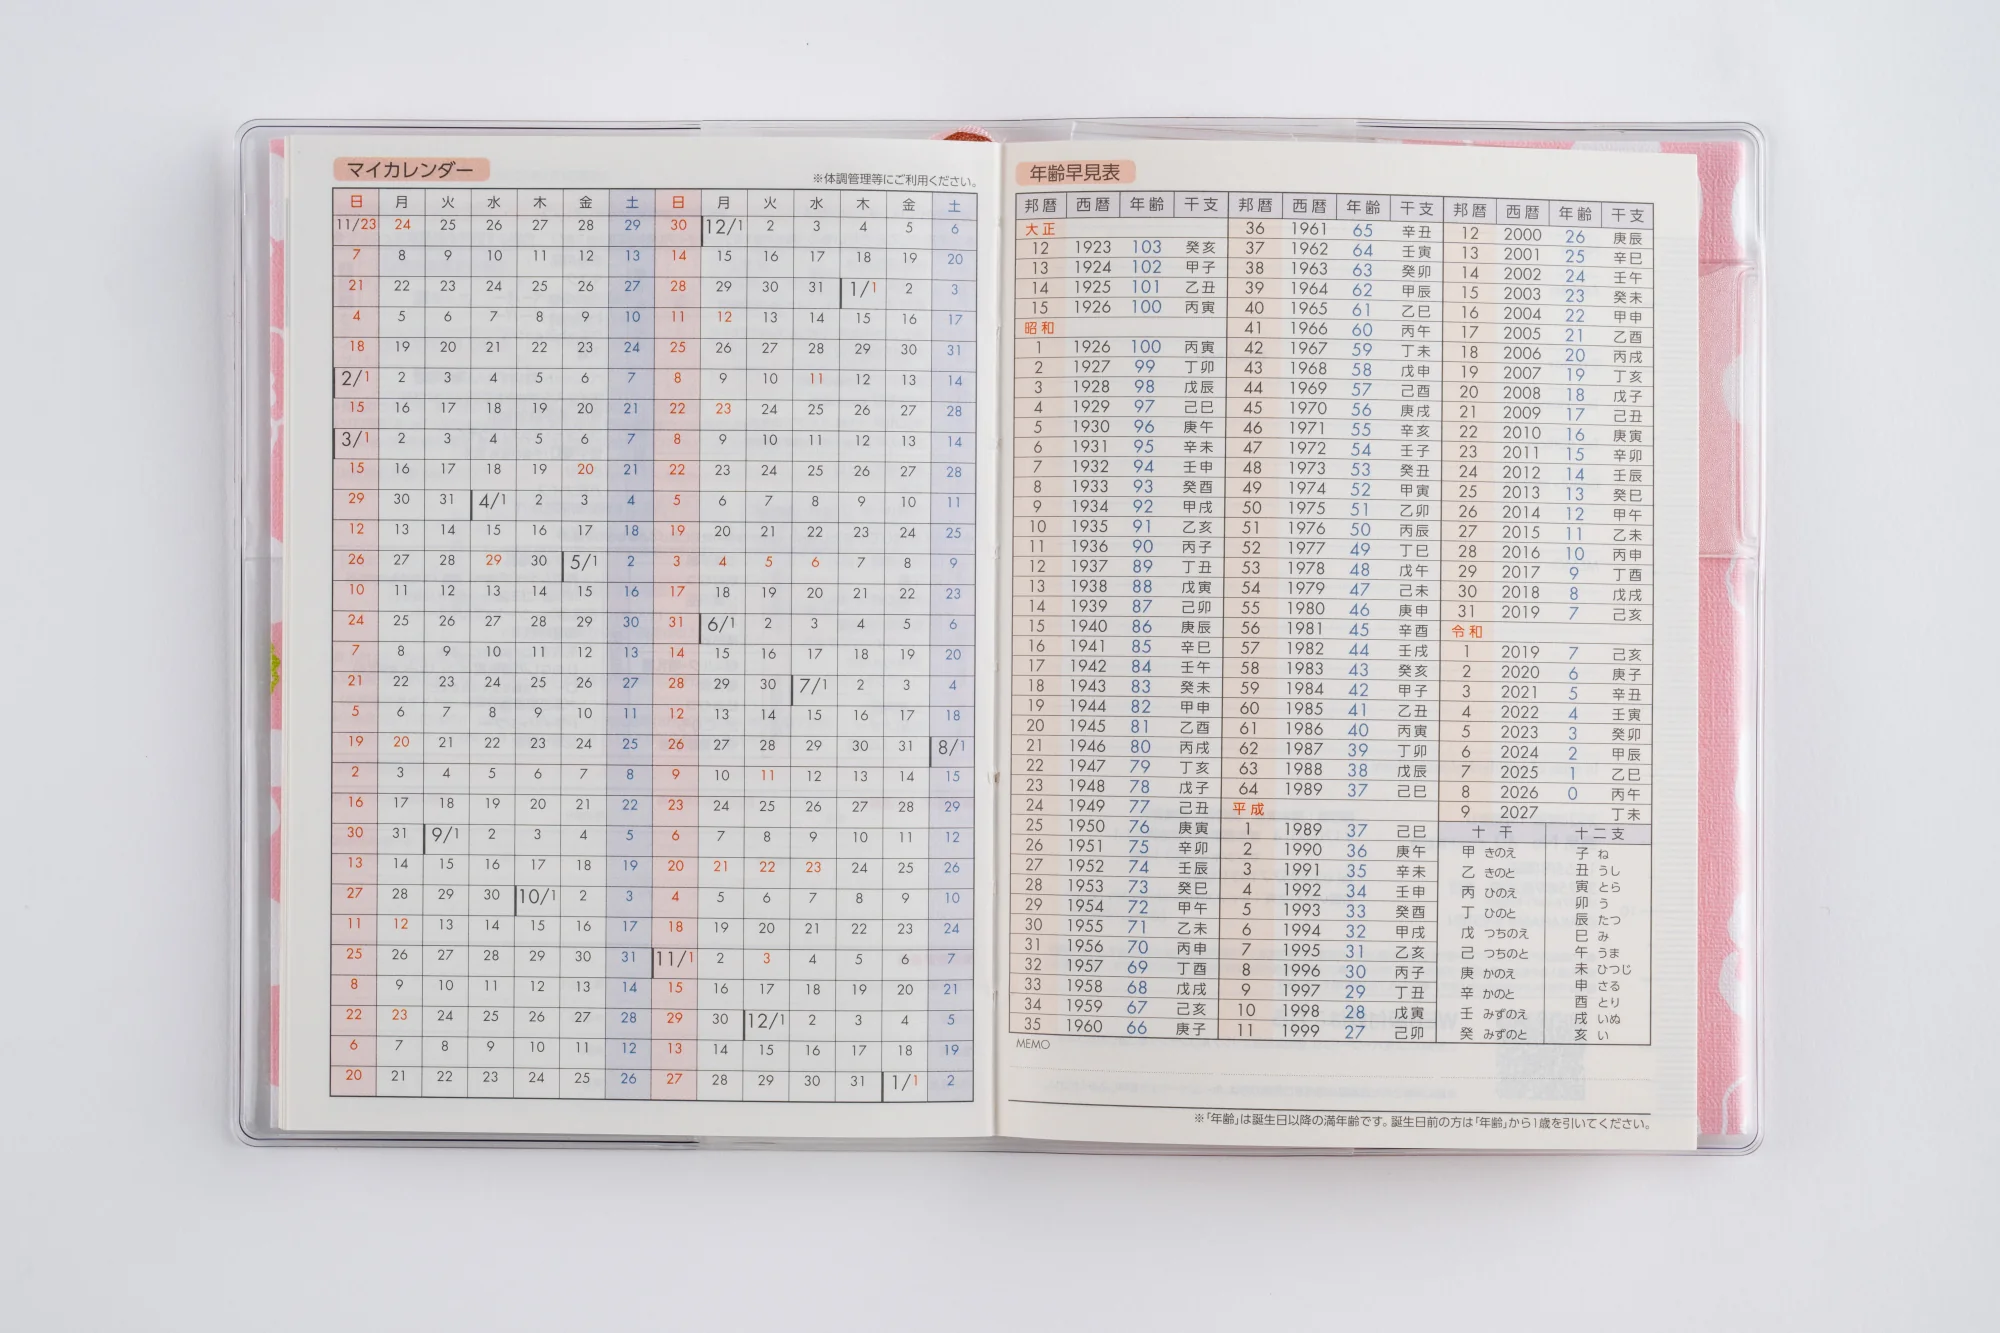 マイカレンダー
※体調管理等にご利用ください。
日 月 火 水 木 金 土 日 月 火 水 木 金 土
11/23 24 25 26 27 28 29 30 12/1 2 3 4 5 6
7 8 9 10 11 12 13 14 15 16 17 18 19 20
21 22 23 24 25 26 27 28 29 30 31 1/1 2 3
4 5 6 7 8 9 10 11 12 13 14 15 16 17
18 19 20 21 22 23 24 25 26 27 28 29 30 31
2/1 2 3 4 5 6 7 8 9 10 11 12 13 14
15 16 17 18 19 20 21 22 23 24 25 26 27 28
3/1 2 3 4 5 6 7 8 9 10 11 12 13 14
15 16 17 18 19 20 21 22 23 24 25 26 27 28
29 30 31 4/1 2 3 4 5 6 7 8 9 10 11
12 13 14 15 16 17 18 19 20 21 22 23 24 25
26 27 28 29 30 5/1 2 3 4 5 6 7 8 9
10 11 12 13 14 15 16 17 18 19 20 21 22 23
24 25 26 27 28 29 30 31 6/1 2 3 4 5 6
7 8 9 10 11 12 13 14 15 16 17 18 19 20
21 22 23 24 25 26 27 28 29 30 7/1 2 3 4
5 6 7 8 9 10 11 12 13 14 15 16 17 18
19 20 21 22 23 24 25 26 27 28 29 30 31 8/1
2 3 4 5 6 7 8 9 10 11 12 13 14 15
16 17 18 19 20 21 22 23 24 25 26 27 28 29
30 31 9/1 2 3 4 5 6 7 8 9 10 11 12
13 14 15 16 17 18 19 20 21 22 23 24 25 26
27 28 29 30 10/1 2 3 4 5 6 7 8 9 10
11 12 13 14 15 16 17 18 19 20 21 22 23 24
25 26 27 28 29 30 31 11/1 2 3 4 5 6 7
8 9 10 11 12 13 14 15 16 17 18 19 20 21
22 23 24 25 26 27 28 29 30 12/1 2 3 4 5
6 7 8 9 10 11 12 13 14 15 16 17 18 19
20 21 22 23 24 25 26 27 28 29 30 31 1/1 2
年齢早見表
邦暦 西暦 年齢 干支
大正
12 1923 103 癸亥
13 1924 102 甲子
14 1925 101 乙丑
15 1926 100 丙寅
昭和
1 1926 100 丙寅
2 1927 99 丁卯
3 1928 98 戊辰
4 1929 97 己巳
5 1930 96 庚午
6 1931 95 辛未
7 1932 94 壬申
8 1933 93 癸酉
9 1934 92 甲戌
10 1935 91 乙亥
11 1936 90 丙子
12 1937 89 丁丑
13 1938 88 戊寅
14 1939 87 己卯
15 1940 86 庚辰
16 1941 85 辛巳
17 1942 84 壬午
18 1943 83 癸未
19 1944 82 甲申
20 1945 81 乙酉
21 1946 80 丙戌
22 1947 79 丁亥
23 1948 78 戊子
24 1949 77 己丑
25 1950 76 庚寅
26 1951 75 辛卯
27 1952 74 壬辰
28 1953 73 癸巳
29 1954 72 甲午
30 1955 71 乙未
31 1956 70 丙申
32 1957 69 丁酉
33 1958 68 戊戌
34 1959 67 己亥
35 1960 66 庚子
邦暦 西暦 年齢 干支
36 1961 65 辛丑
37 1962 64 壬寅
38 1963 63 癸卯
39 1964 62 甲辰
40 1965 61 乙巳
41 1966 60 丙午
42 1967 59 丁未
43 1968 58 戊申
44 1969 57 己酉
45 1970 56 庚戌
46 1971 55 辛亥
47 1972 54 壬子
48 1973 53 癸丑
49 1974 52 甲寅
50 1975 51 乙卯
51 1976 50 丙辰
52 1977 49 丁巳
53 1978 48 戊午
54 1979 47 己未
55 1980 46 庚申
56 1981 45 辛酉
57 1982 44 壬戌
58 1983 43 癸亥
59 1984 42 甲子
60 1985 41 乙丑
61 1986 40 丙寅
62 1987 39 丁卯
63 1988 38 戊辰
64 1989 37 己巳
平成
1 1989 37 己巳
2 1990 36 庚午
3 1991 35 辛未
4 1992 34 壬申
5 1993 33 癸酉
6 1994 32 甲戌
7 1995 31 乙亥
8 1996 30 丙子
9 1997 29 丁丑
10 1998 28 戊寅
11 1999 27 己卯
邦暦 西暦 年齢 干支
12 2000 26 庚辰
13 2001 25 辛巳
14 2002 24 壬午
15 2003 23 癸未
16 2004 22 甲申
17 2005 21 乙酉
18 2006 20 丙戌
19 2007 19 丁亥
20 2008 18 戊子
21 2009 17 己丑
22 2010 16 庚寅
23 2011 15 辛卯
24 2012 14 壬辰
25 2013 13 癸巳
26 2014 12 甲午
27 2015 11 乙未
28 2016 10 丙申
29 2017 9 丁酉
30 2018 8 戊戌
31 2019 7 己亥
令和
1 2019 7 己亥
2 2020 6 庚子
3 2021 5 辛丑
4 2022 4 壬寅
5 2023 3 癸卯
6 2024 2 甲辰
7 2025 1 乙巳
8 2026 0 丙午
9 2027 丁未
十干
甲 きのえ
乙 きのと
丙 ひのえ
丁 ひのと
戊 つちのえ
己 つちのと
庚 かのえ
辛 かのと
壬 みずのえ
癸 みずのと
十二支
子 ね
丑 うし
寅 とら
卯 う
辰 たつ
巳 み
午 うま
未 ひつじ
申 さる
酉 とり
戌 いぬ
亥 い
MEMO
※「年齢」は誕生日以降の満年齢です。誕生日前の方は「年齢」から1歳を引いてください。